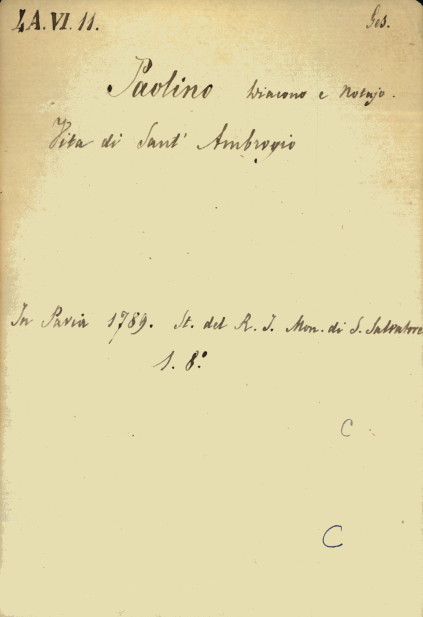 ZA.VI.11. Ges.
Paolino Diacono e Notajo.
Vita di Sant' Ambrogio
In Pavia 1789. St. del R. I. Mon. di S. Salvatore
1. 8.º
C
C